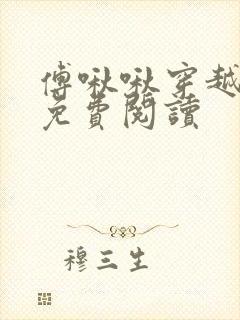 傅啾啾穿越
免費閱讀
穆三生